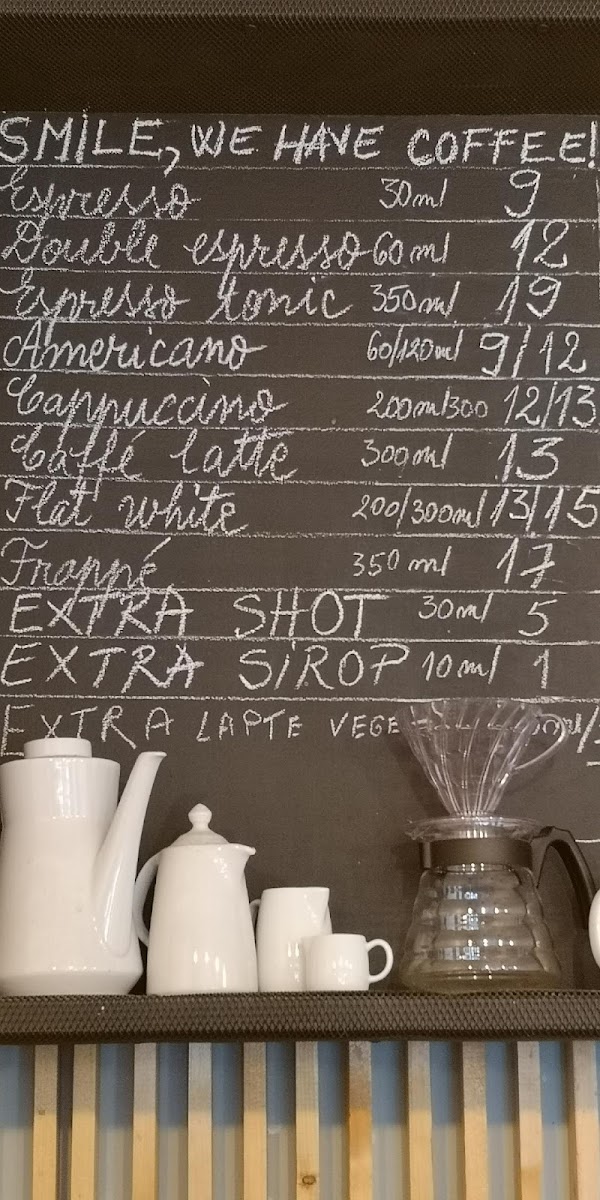 SMILE, WE HAVE COFFEE!
Espresso 30ml 9
Double espresso 60ml 12
Espresso tonic 350ml 19
Americano 60/120ml 9/12
Cappuccino 200ml/300 12/13
Caffé latte 300ml 13
Flat white 200/300ml 13/15
Frappé 350ml 17
EXTRA SHOT 30ml 5
EXTRA SIROP 10ml 1
EXTRA LAPTE